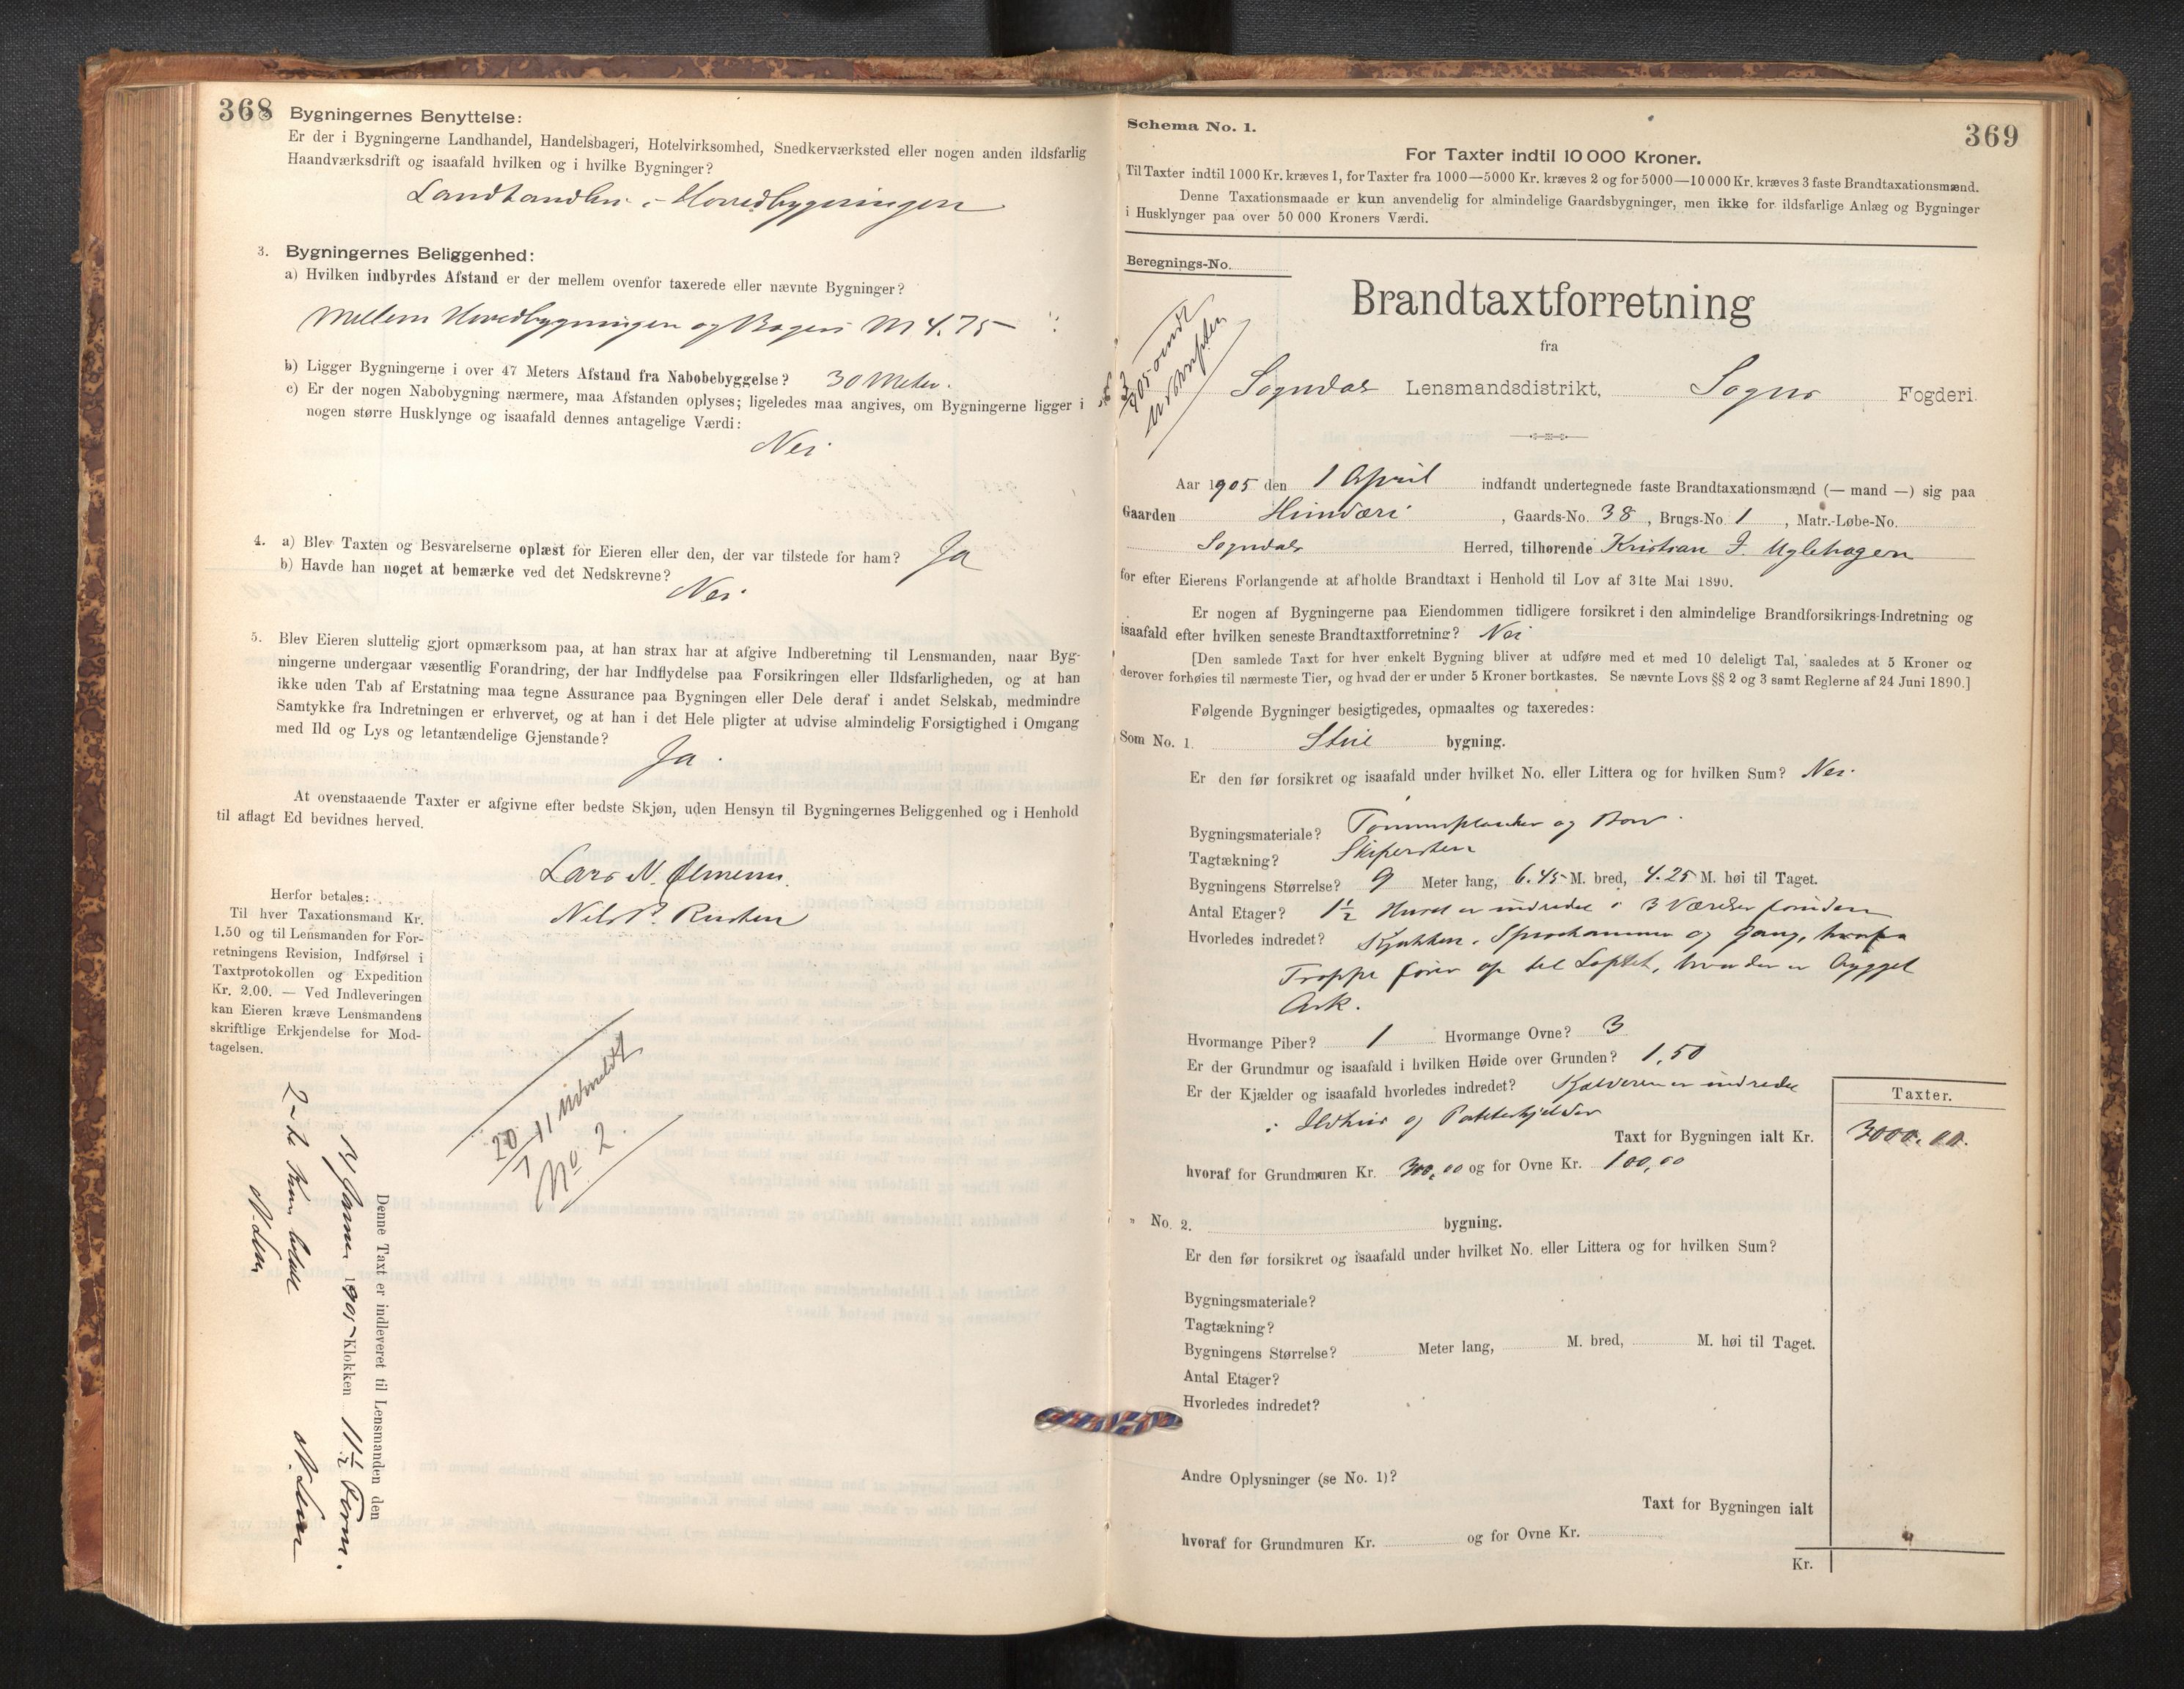 368
Bygningernes Benyttelse:
Er der i Bygningerne Landhandel, Handelsbageri, Hotelvirksomhed, Snedkerværksted eller nogen anden ildsfarlig
Haandværksdrift og isaafald hvilken og i hvilke Bygninger?
i Hovedbygningen
3. Bygningernes Beliggenhed:
a) Hvilken indbyrdes Afstand er der mellem ovenfor taxerede eller nævnte Bygninger?
Mellem Hovedbygningen og Bageri M 4.75
b) Ligger Bygningerne i over 47 Meters Afstand fra Nabobebyggelse? 30 Meter.
c) Er der nogen Nabobygning nærmere, maa Afstanden oplyses; ligeledes maa angives, om Bygningerne ligger i
nogen større Husklynge og isaafald dennes antagelige Værdi:
Nei
4. a) Blev Taxten og Besvarelserne oplæst for Eieren eller den, der var tilstede for ham? Ja
b) Havde han noget at bemærke ved det Nedskrevne?
Nei.
5. Blev Eieren sluttelig gjort opmærksom paa, at han strax har at afgive Indberetning til Lensmanden, naar Byg-
ningerne undergaar væsentlig Forandring, der har Indflydelse paa Forsikringen eller Ildsfarligheden, og at han
ikke uden Tab af Erstatning maa tegne Assurance paa Bygningen eller Dele deraf i andet Selskab, medmindre
Samtykke fra Indretningen er erhvervet, og at han i det Hele pligter at udvise almindelig Forsigtighed i Omgang
med Ild og Lys og letantændelige Gjenstande?
Ja.
At ovenstaaende Taxter er afgivne efter bedste Skjøn, uden Hensyn til Bygningernes Beliggenhed og i Henhold
til aflagt Ed bevidnes herved.
Lars N. Ølmenn.
Nels P.
Herfor betales:
Til hver Taxationsmand Kr.
1.50 og til Lensmanden for For-
retningens Revision, Indførsel i
Taxtprotokollen og Expedition
Kr. 2.00. — Ved Indleveringen
kan Eieren kræve Lensmandens
skriftlige Erkjendelse for Mod-
tagelsen.
20/7 11 udmeldt
No 2.
Denne Taxt er indleveret til Lensmanden den
1905 Klokken 11½ Form.
Schema No. 1.
369
For Taxter indtil 10 000 Kroner.
Til Taxter indtil 1000 Kr. kræves 1, for Taxter fra 1000—5000 Kr. kræves 2 og for 5000—10 000 Kr. kræves 3 faste Brandtaxationsmænd.
Denne Taxationsmaade er kun anvendelig for almindelige Gaardsbygninger, men ikke for ildsfarlige Anlæg og Bygninger
i Husklynger paa over 50 000 Kroners Værdi.
Beregnings-No.
Brandtaxtforretning
fra
Sogndal Lensmandsdistrikt, Sogns Fogderi.
Aar 1905 den 1 April indfandt undertegnede faste Brandtaxationsmænd (— mand —) sig paa
Gaarden , Gaards-No. 38, Brugs-No. 1, Matr.-Løbe-No.
Sogndals Herred, tilhørende Kristian J. Uglehagen
for efter Eierens Forlangende at afholde Brandtaxt i Henhold til Lov af 31te Mai 1890.
Er nogen af Bygningerne paa Eiendommen tidligere forsikret i den almindelige Brandforsikrings-Indretning og
isaafald efter hvilken seneste Brandtaxtforretning? Nei
[Den samlede Taxt for hver enkelt Bygning bliver at udføre med et med 10 deleligt Tal, saaledes at 5 Kroner og
derover forhøies til nærmeste Tier, og hvad der er under 5 Kroner bortkastes. Se nævnte Lovs §§ 2 og 3 samt Reglerne af 24 Juni 1890.]
Følgende Bygninger besigtigedes, opmaaltes og taxeredes:
Som No. 1. bygning.
Er den før forsikret og isaafald under hvilket No. eller Littera og for hvilken Sum? Nei.
Bygningsmateriale? Tømmerplanker og Bord.
Tagtækning? Skifersten
Bygningens Størrelse? 9 Meter lang, 6.45 M. bred, 4.25 M. høi til Taget.
Antal Etager? 1½ Huset er indredet i 3 Værelser foruden
Hvorledes indredet? Kjøkken, Spisekammer og Gang, hvorfra
Trappe fører op til Loftet, hvor der er bygget
Ark.
Hvormange Piber? 1 Hvormange Ovne? 3
Er der Grundmur og isaafald i hvilken Høide over Grunden? 1,50
Er der Kjælder og isaafald hvorledes indredet? Kjælderen er indredet
i Ildhus og
Taxter.
Taxt for Bygningen ialt Kr. 3000.00.
hvoraf for Grundmuren Kr. 300,00 og for Ovne Kr. 100,00
" No. 2. bygning.
Er den før forsikret og isaafald under hvilket No. eller Littera og for hvilken Sum?
Bygningsmateriale?
Tagtækning?
Bygningens Størrelse? Meter lang, M. bred, M. høi til Taget.
Antal Etager?
Hvorledes indredet?
Andre Oplysninger (se No. 1)?
Taxt for Bygningen ialt
hvoraf for Grundmuren Kr. og for Ovne Kr.
Kr.